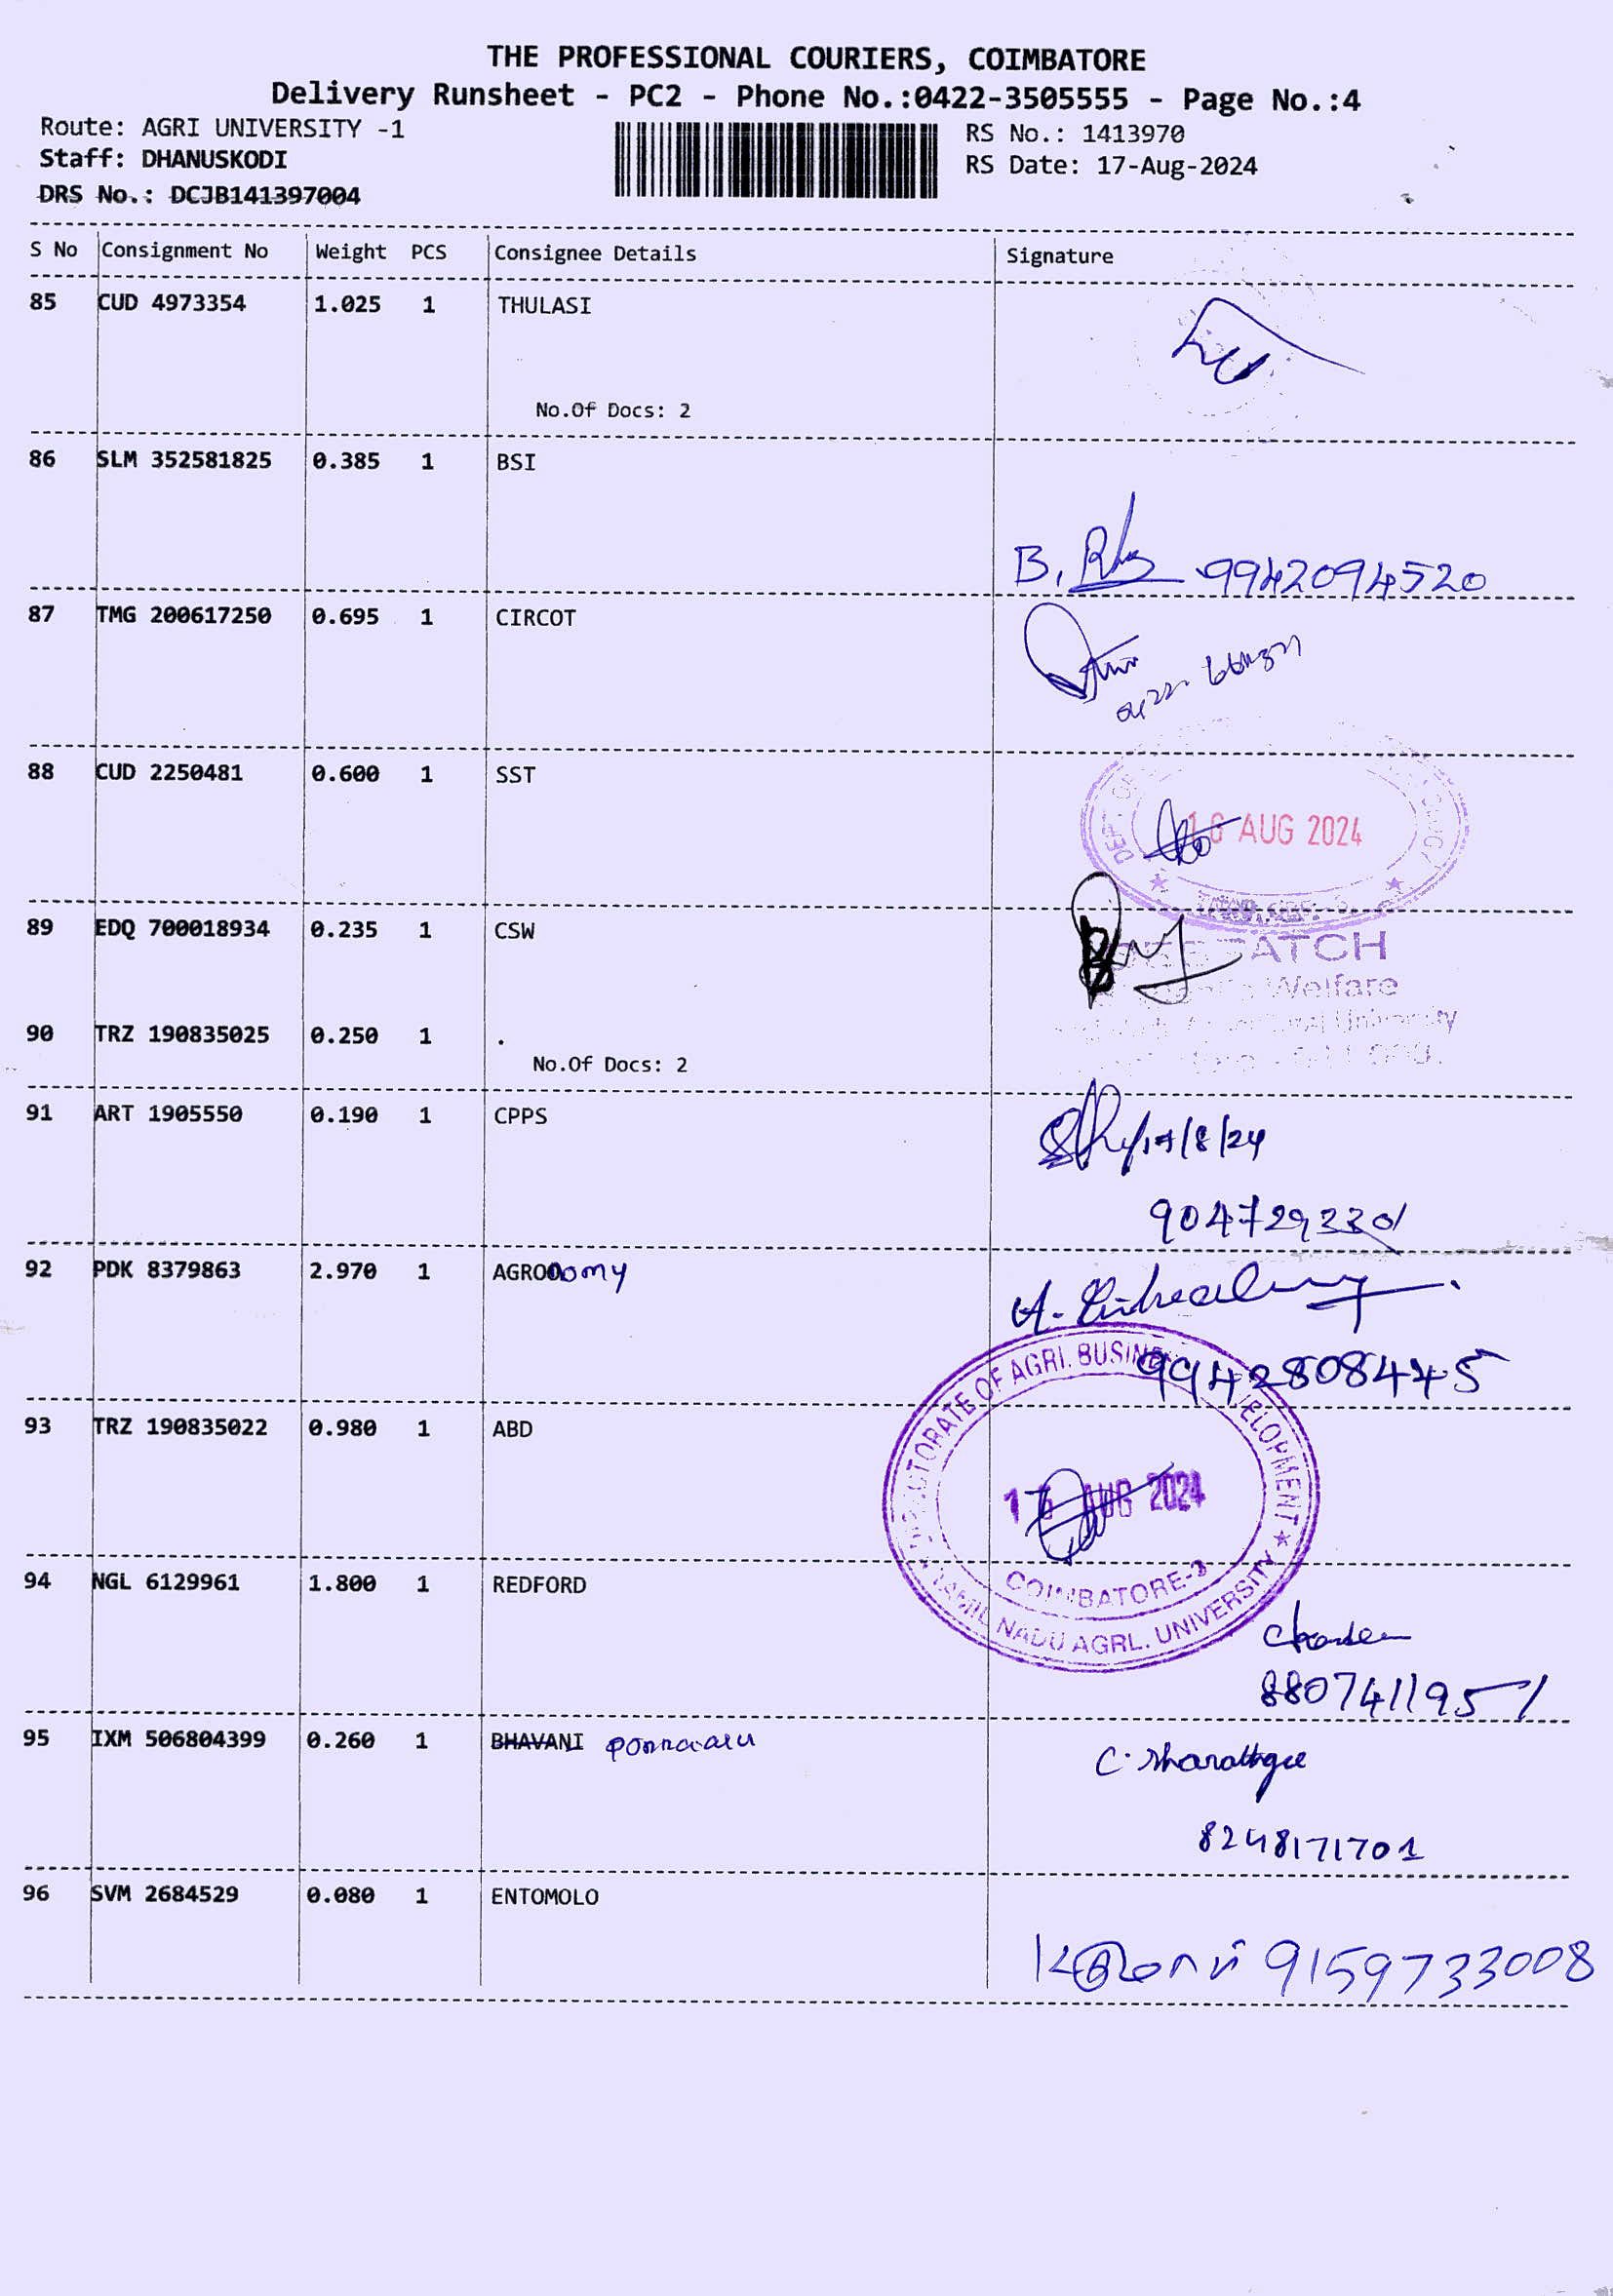 THE PROFESSIONAL COURIERS, COIMBATORE
Delivery Runsheet - PC2 - Phone No.:0422-3505555 - Page No.:4
Route: AGRI UNIVERSITY -1
RS No.: 1413970
Staff: DHANUSKODI
RS Date: 17-Aug-2024
DRS No.: DCJB141397004
S No Consignment No Weight PCS Consignee Details Signature
85 CUD 4973354 1.025 1 THULASI
No.Of Docs: 2
86 SLM 352581825 0.385 1 BSI
B. 9942094520
87 TMG 200617250 0.695 1 CIRCOT
88 CUD 2250481 0.600 1 SST
AUG 2024
89 EDQ 700018934 0.235 1 CSW
Welfare
University
90 TRZ 190835025 0.250 1 .
No.Of Docs: 2
91 ART 1905550 0.190 1 CPPS
17/8/24
92 PDK 8379863 2.970 1 AGRONOMY
9942808445
93 TRZ 190835022 0.980 1 ABD
DIRECTORATE OF AGRI. BUSINESS DEVELOPMENT
AUG 2024
COIMBATORE-3
TAMIL NADU AGRL. UNIVERSITY
94 NGL 6129961 1.800 1 REDFORD
8807411951
95 IXM 506804399 0.260 1 BHAVANI
C.
8248171701
96 SVM 2684529 0.080 1 ENTOMOLO
9159733008